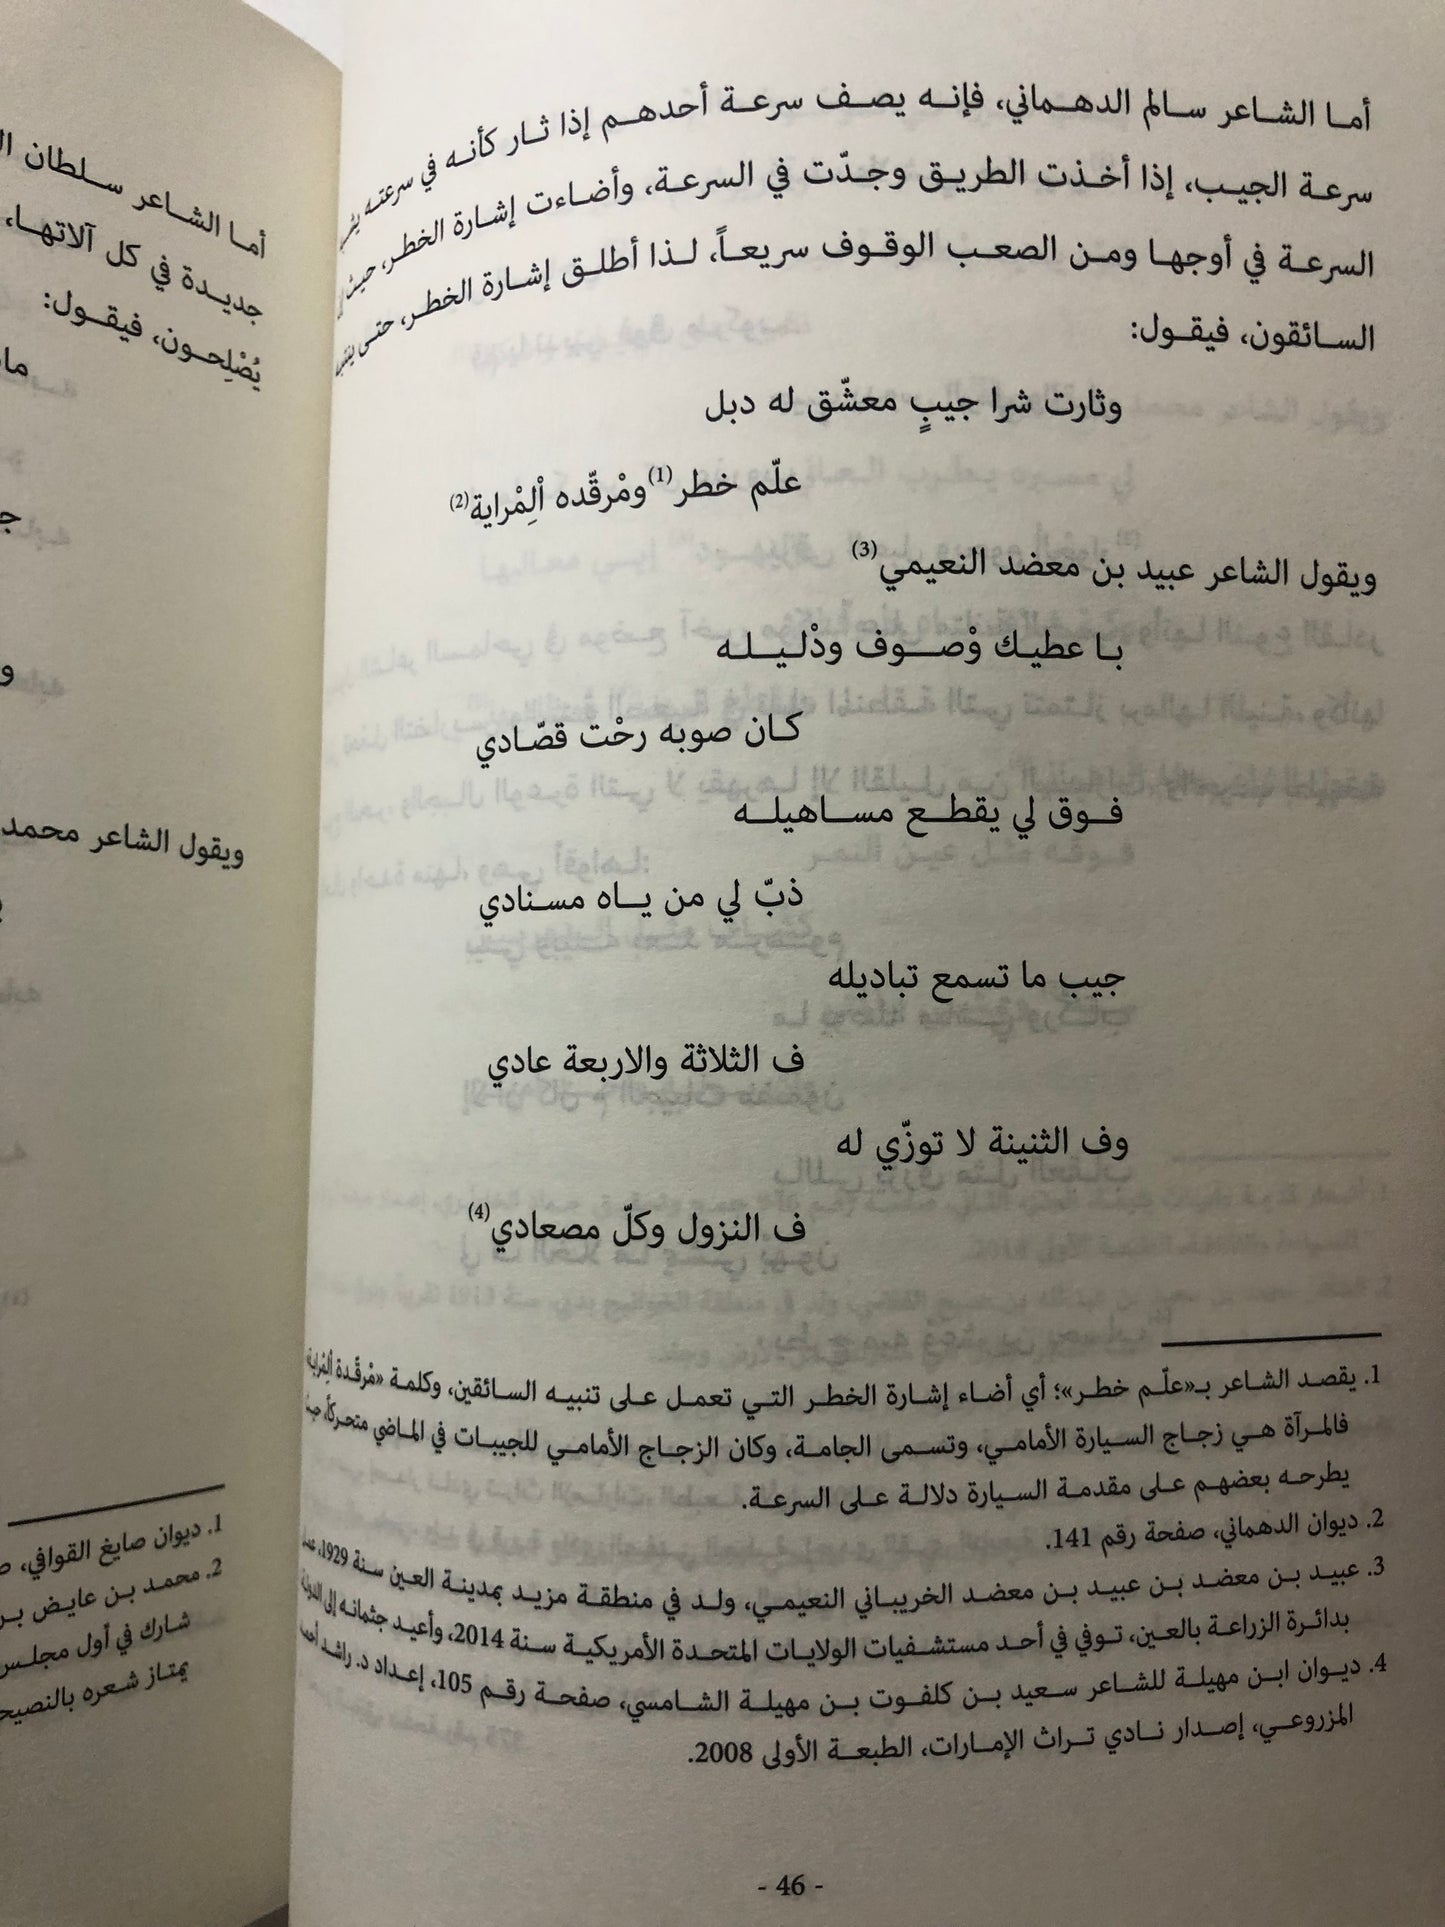 أما الشاعر سالم الدهماني، فإنه يصف سرعة أحدهم إذا ثار كأنه في سرعته
سرعة الجيب، إذا أخذت الطريق وجدّت في السرعة، وأضاءت إشارة الخطر، حيث
السرعة في أوجها ومن الصعب الوقوف سريعاً، لذا أطلق إشارة الخطر، حتى
السائقون، فيقول:
وثارت شرا جيبٍ معشّق له دبل
علّم خطر(1) ومْرقّده اْلِمْراية(2)
ويقول الشاعر عبيد بن معضد النعيمي(3)
با عطيك وْصوف ودْليله
كان صوبه رحْت قصّادي
فوق لي يقطع مساهيله
ذبّ لي من ياه مسنادي
جيب ما تسمع تباديله
ف الثلاثة والاربعة عادي
وف الثنينة لا توزّي له
ف النزول وكلّ مصعادي(4)
1. يقصد الشاعر بـ«علّم خطر»؛ أي أضاء إشارة الخطر التي تعمل على تنبيه السائقين، وكلمة «مْرقّدة اْلِمْراية
فالمرآة هي زجاج السيارة الأمامي، وتسمى الجامة، وكان الزجاج الأمامي للجيبات في الماضي متحركاً،
يطرحه بعضهم على مقدمة السيارة دلالة على السرعة.
2. ديوان الدهماني، صفحة رقم 141.
3. عبيد بن معضد بن عبيد بن معضد الخريباني النعيمي، ولد في منطقة مزيد بمدينة العين سنة 1929،
بدائرة الزراعة بالعين، توفي في أحد مستشفيات الولايات المتحدة الأمريكية سنة 2014، وأعيد جثمانه إلى الدولة
4. ديوان ابن مهيلة للشاعر سعيد بن كلفوت بن مهيلة الشامسي، صفحة رقم 105، إعداد د. راشد أحمد
المزروعي، إصدار نادي تراث الإمارات، الطبعة الأولى 2008.
- 46 -
أما الشاعر سلطان
جديدة في كل آلاتها،
يُصْلِحون، فيقول:
ويقول الشاعر محمد
1. ديوان صايغ القوافي،
2. محمد بن عايض بن
شارك في أول مجلس
يمتاز شعره